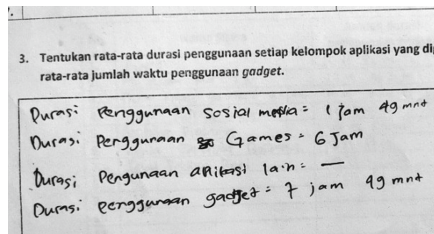 3. Tentukan rata-rata durasi penggunaan setiap kelompok aplikasi yang di
rata-rata jumlah waktu penggunaan gadget.
Durasi Penggunaan sosial media = 1 Jam 49 mnt
Durasi Penggunaan Games = 6 Jam
Durasi Pengunaan aplikasi lain = —
Durasi penggunaan gadjet = 7 jam 49 mnt